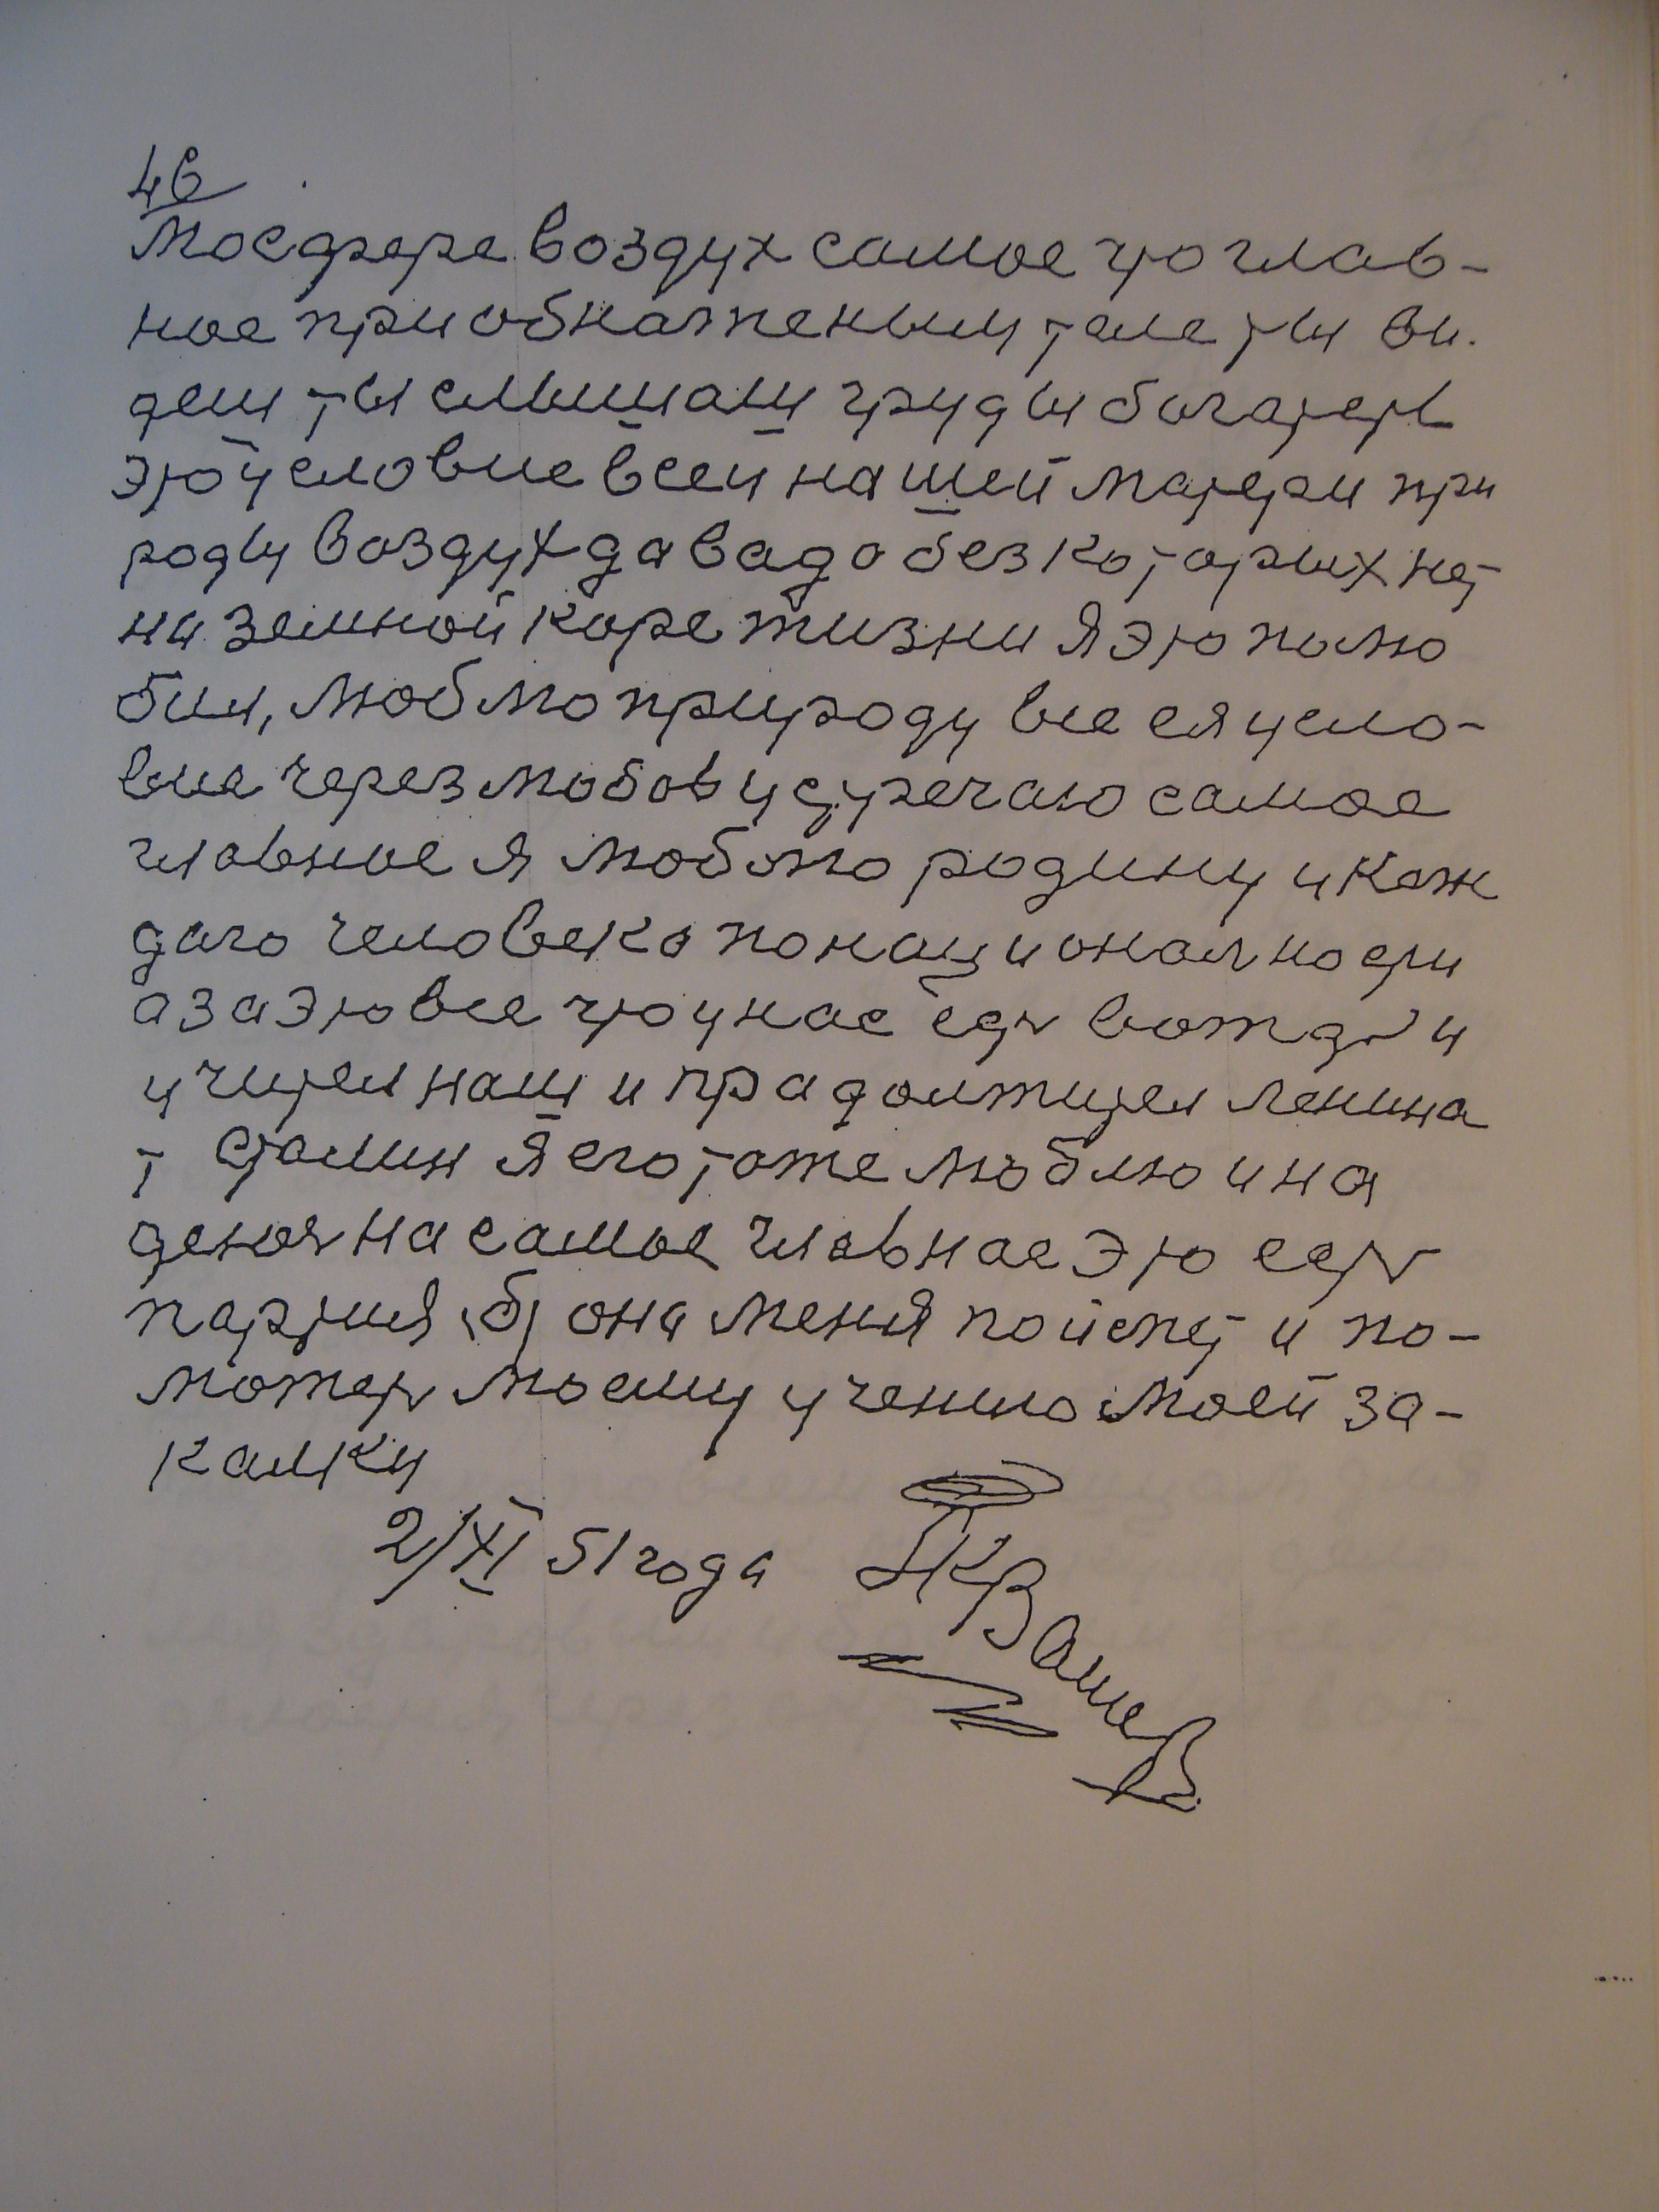 46
мосфере воздух самое что глав-
ное при обнаженым теле ты ви
деш ты слышаш груды богатеть
это условие всей нашей матери при
роды воздух да вада без которых нет
на земной коре жизни я это полю
бил, люблю природу все ея усло-
вие через любов устречаю самое
главное я люблю родину и каж
даго человека по национальности
а за это все что у нас есть вождь и
учител наш и прадолжител ленина
т Сталин я его тоже люблю и на
деюсь на самое главное это есть
партия (б) она меня поймет и по-
может моему учению моей за-
калки
2/XI 51 года